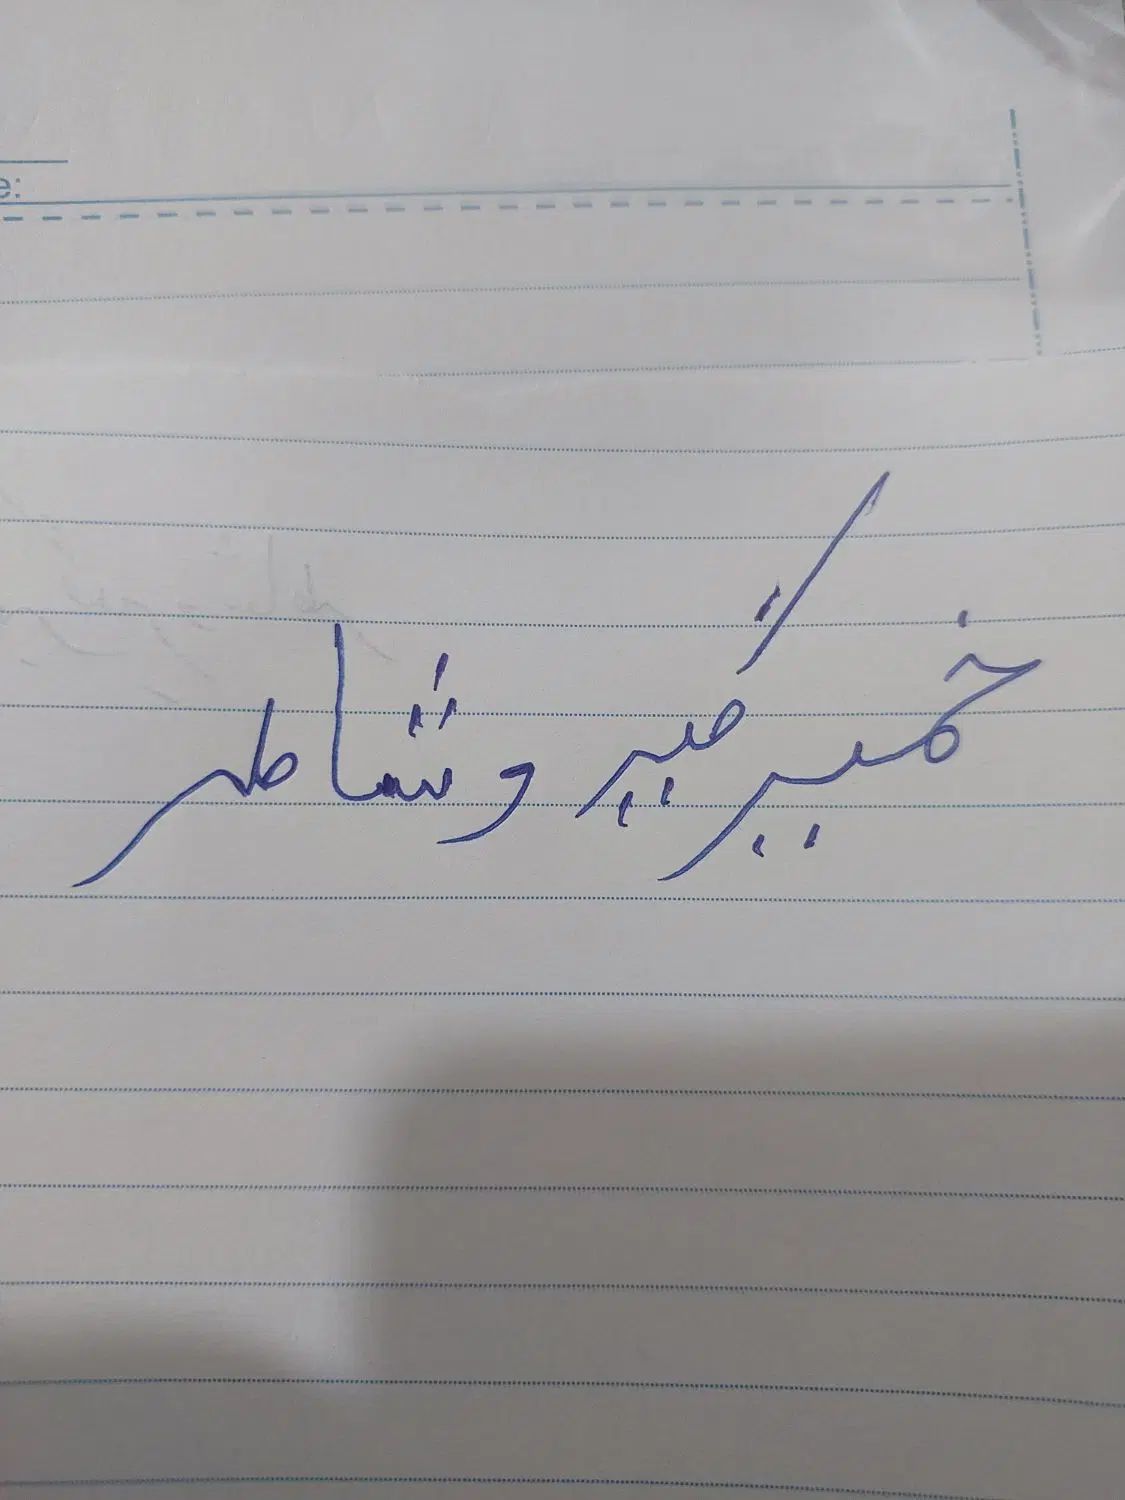 e:
خمیر گیر و شاطر